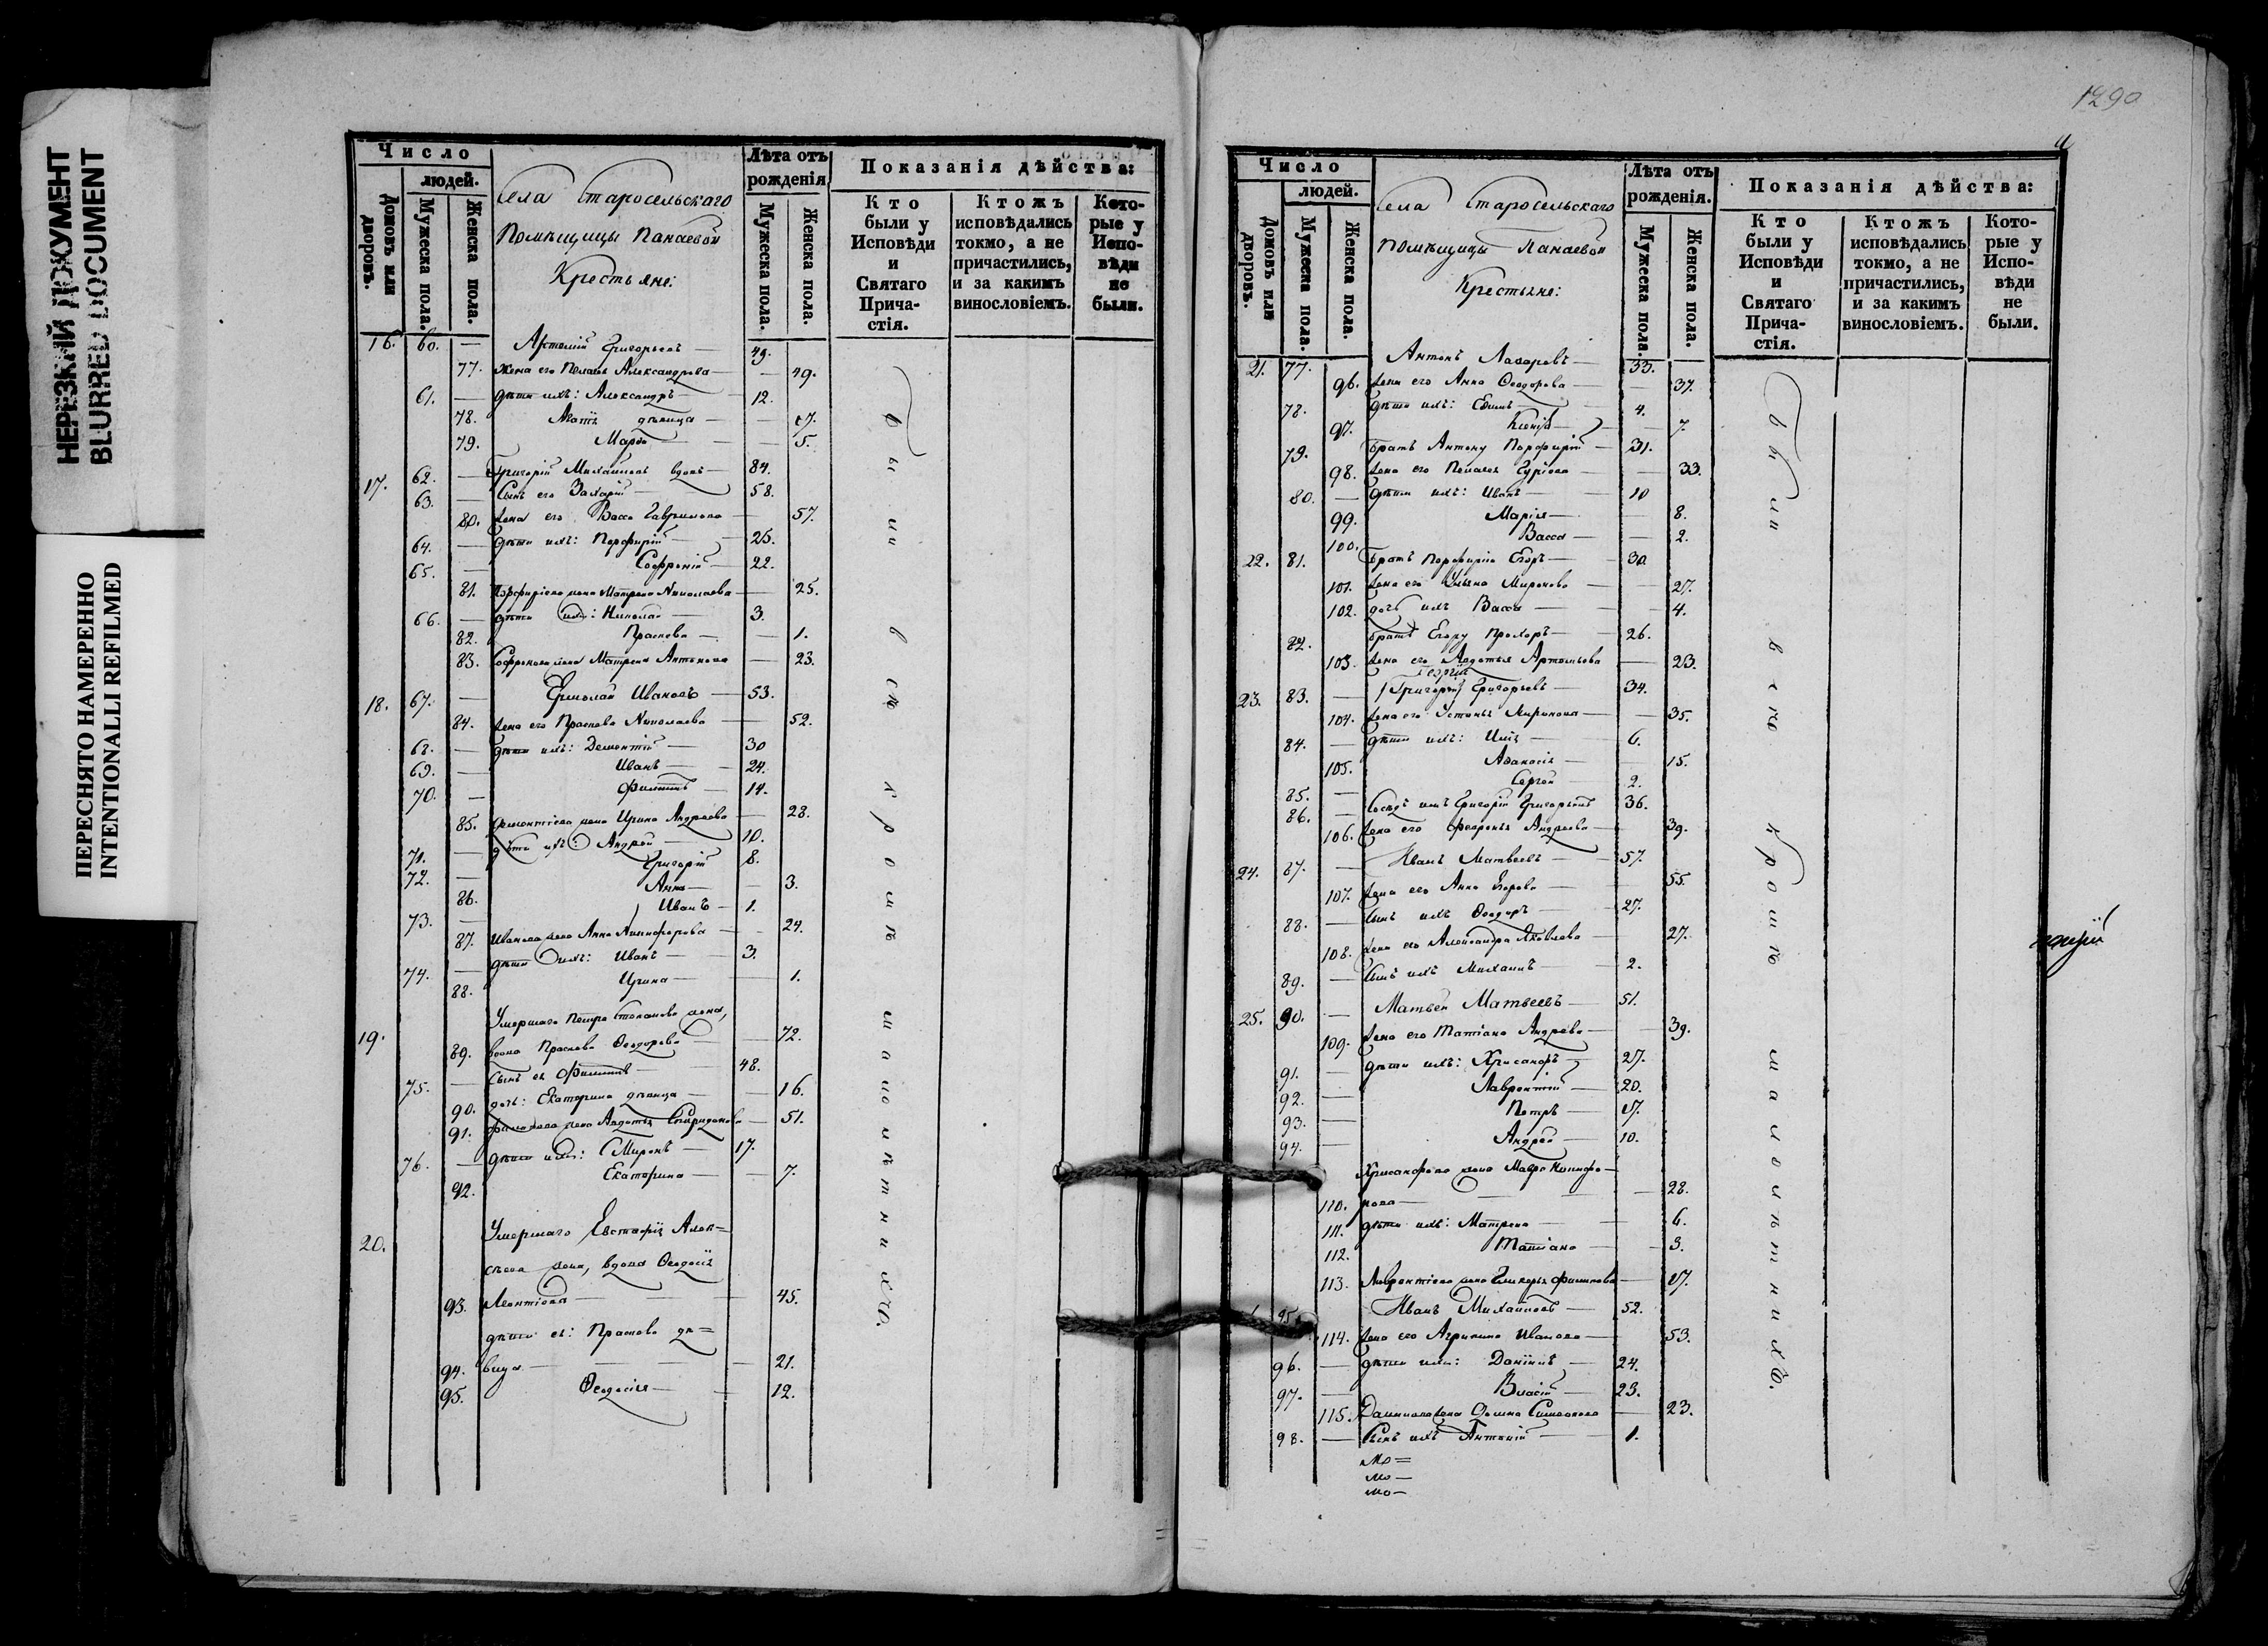 НЕРЕЗКИЙ ДОКУМЕНТ
BLURRED DOCUMENT
ПЕРЕСНЯТО НАМЕРЕННО
INTENTIONALLI REFILMED
Число
людей.
Домовъ или дворовъ.
Мужеска пола.
Женска пола.
Села Старосельскаго
Помѣщицы Панаевой
Крестьяне:
Лѣта отъ рожденія
Мужеска пола.
Женска пола.
Показанія дѣйства:
Кто были у Исповѣди и Святаго Прича-стія.
Ктожъ исповѣдались токмо, а не причастились, и за какимъ винословіемъ.
Кото-рые у Испо-вѣди не были.
16. 60. — Артемій Григорьевъ — 49.
77. Жена его Пелагея Александрова — 49.
61. — дѣти ихъ: Александръ — 12.
78. девица — 17.
79. Марѳа — 5.
17. 62. — Григорій Михайловъ вдовъ — 84.
63. — Сынъ его Захарій — 58.
80. жена его Васса Гаврилова — 57.
64. — дѣти ихъ: Порфирій — 25.
65. — Софроній — 22.
81. Порфиріева жена Матрена Николаева — 25.
66. — дѣти ихъ: Николай — 3.
82. Прасковья — 1.
83. Софронова жена Матрена Антонова — 23.
18. 67. — Ермолай Ивановъ — 53.
84. жена его Прасковья Николаева — 52.
68. — дѣти ихъ: Дементій — 30
69. — Иванъ — 24.
70. — Филиппъ — 14.
85. Дементіева жена Ирина Андреева — 28.
71. — дѣти ихъ: Андрей — 10.
72. — Григорій 8.
86. Анна — 3.
73. — Иванъ — 1.
87. Иванова жена Анна Никифорова — 24.
74. — дѣти ихъ: Иванъ — 3.
88. Ирина — 1.
19. Умершаго Петра Степанова жена,
89. вдова Прасковья Ѳеодорова — 72.
75. — Сынъ ея Филиппъ — 48.
90. дочь: Екатерина девица — 16.
91. Филиппова жена Авдотья Спиридонова — 51.
76. — дѣти ихъ: Миронъ — 17.
92. Екатерина — 7.
20. Умершаго Евстафія Алек=
сѣева жена, вдова Ѳеодосія
93. Леонтіева — 45.
дѣти ея: Прасковья дѣ=
94. вица — 21.
95. Ѳеодосія — 12.
Были всѣ кромѣ малолѣтнихъ.
1290
Число
людей.
Домовъ или дворовъ.
Мужеска пола.
Женска пола.
Села Старосельскаго
Помѣщицы Панаевой
Крестьяне:
Лѣта отъ рожденія.
Мужеска пола.
Женска пола.
Показанія дѣйства:
Кто были у Исповѣди и Святаго Прича-стія.
Ктожъ исповѣдались токмо, а не причастились, и за какимъ винословіемъ.
Кото-рые у Испо-вѣди не были.
21. 77. Антонъ Лазаревъ — 33.
96. жена его Анна Ѳеодорова — 37.
78. дѣти ихъ: Ефимъ — 4.
97. Ксенія — 7.
79. братъ Антону Порфирій — 31.
98. жена его Пелагея Гуріева — 33.
80. — дѣти ихъ: Иванъ — 10
99. Марія — 8.
100. Васса — 2.
22. 81. братъ Порфирію Егоръ — 30
101. жена его Ульяна Миронова — 27.
102. дочь ихъ Васса — 4.
82. братъ Егору Прохоръ — 26.
103. жена его Авдотья Артемьева — 23.
Георгій
23. 83. — Григорій Григорьевъ — 34.
104. жена его Устинья — 35.
84. — дѣти ихъ: Илія — 6.
105. Аѳанасія — 15.
85. — Сергей — 2.
86. — Сосѣдъ имъ Григорій Григорьевъ 36.
106. жена его Февронья Андреева — 39.
24. 87. — Иванъ Матвеевъ — 57.
107. жена его Анна Егорова — 55.
88. — Сынъ ихъ Ѳеодоръ — 27.
108. жена его Александра Яковлева — 27.
89. — Сынъ ихъ Михаилъ — 2.
25. 90. — Матвей Матвеевъ — 51.
109. жена его Татіана Андреева — 39.
91. — дѣти ихъ: Хрисанфъ — 27.
92. — Лаврентій — 20.
93. — Петръ — 17.
94. — Андрей — 10.
Хрисанфова жена Мавра Никифо=
110. рова — 28.
111. дѣти ихъ: Матрена — 6.
112. Татіана — 3.
113. Лаврентіева жена Гликерья Филиппова — 17.
95. Иванъ Михайловъ — 52.
114. жена его Агрипина Иванова — 53.
96. — дѣти ихъ: Даніилъ — 24.
97. — Власій — 23.
115. Даниилова жена Домна Симеонова — 23.
98. — Сынъ ихъ Антоній — 1.
мо=
мо—
мо—
Были всѣ кромѣ малолѣтнихъ.